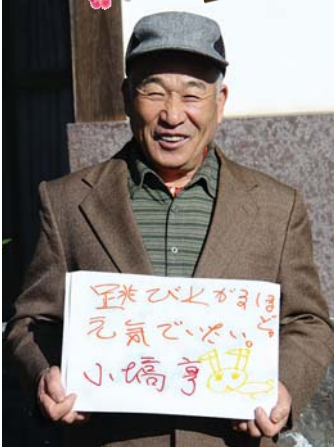 跳び上がるほど。
元気でいたい。
小塙 亨